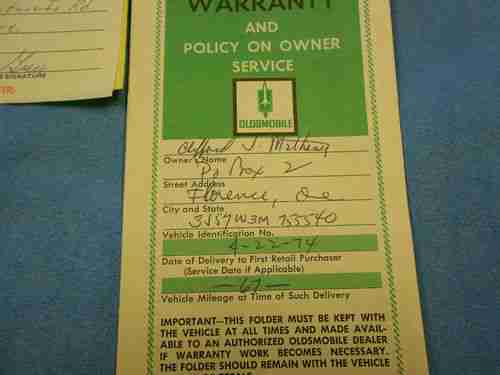 Rd
SIGNATURE
WARRANTY
AND
POLICY ON OWNER
SERVICE
OLDSMOBILE
Clifford J.
Owner's Name
PO Box 2
Street Address
Florence, Ore
City and State
3J57W3M753540
Vehicle Identification No.
4-22-74
Date of Delivery to First Retail Purchaser
(Service Date if Applicable)
—67—
Vehicle Mileage at Time of Such Delivery
IMPORTANT—THIS FOLDER MUST BE KEPT WITH
THE VEHICLE AT ALL TIMES AND MADE AVAIL-
ABLE TO AN AUTHORIZED OLDSMOBILE DEALER
IF WARRANTY WORK BECOMES NECESSARY.
THE FOLDER SHOULD REMAIN WITH THE VEHICLE